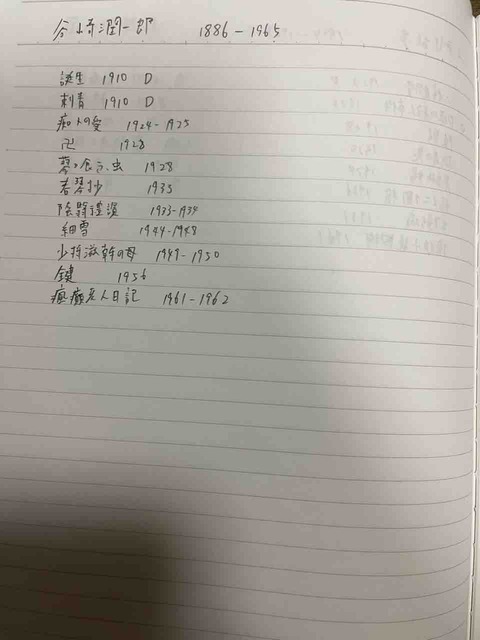 谷崎潤一郎 1886-1965
誕生 1910 D
刺青 1910 D
痴人の愛 1924-1925
卍 1928
蓼で食う虫 1928
春琴抄 1933
陰翳礼讃 1933-1934
細雪 1944-1948
少将滋幹の母 1949-1950
鍵 1956
瘋癲老人日記 1961-1962